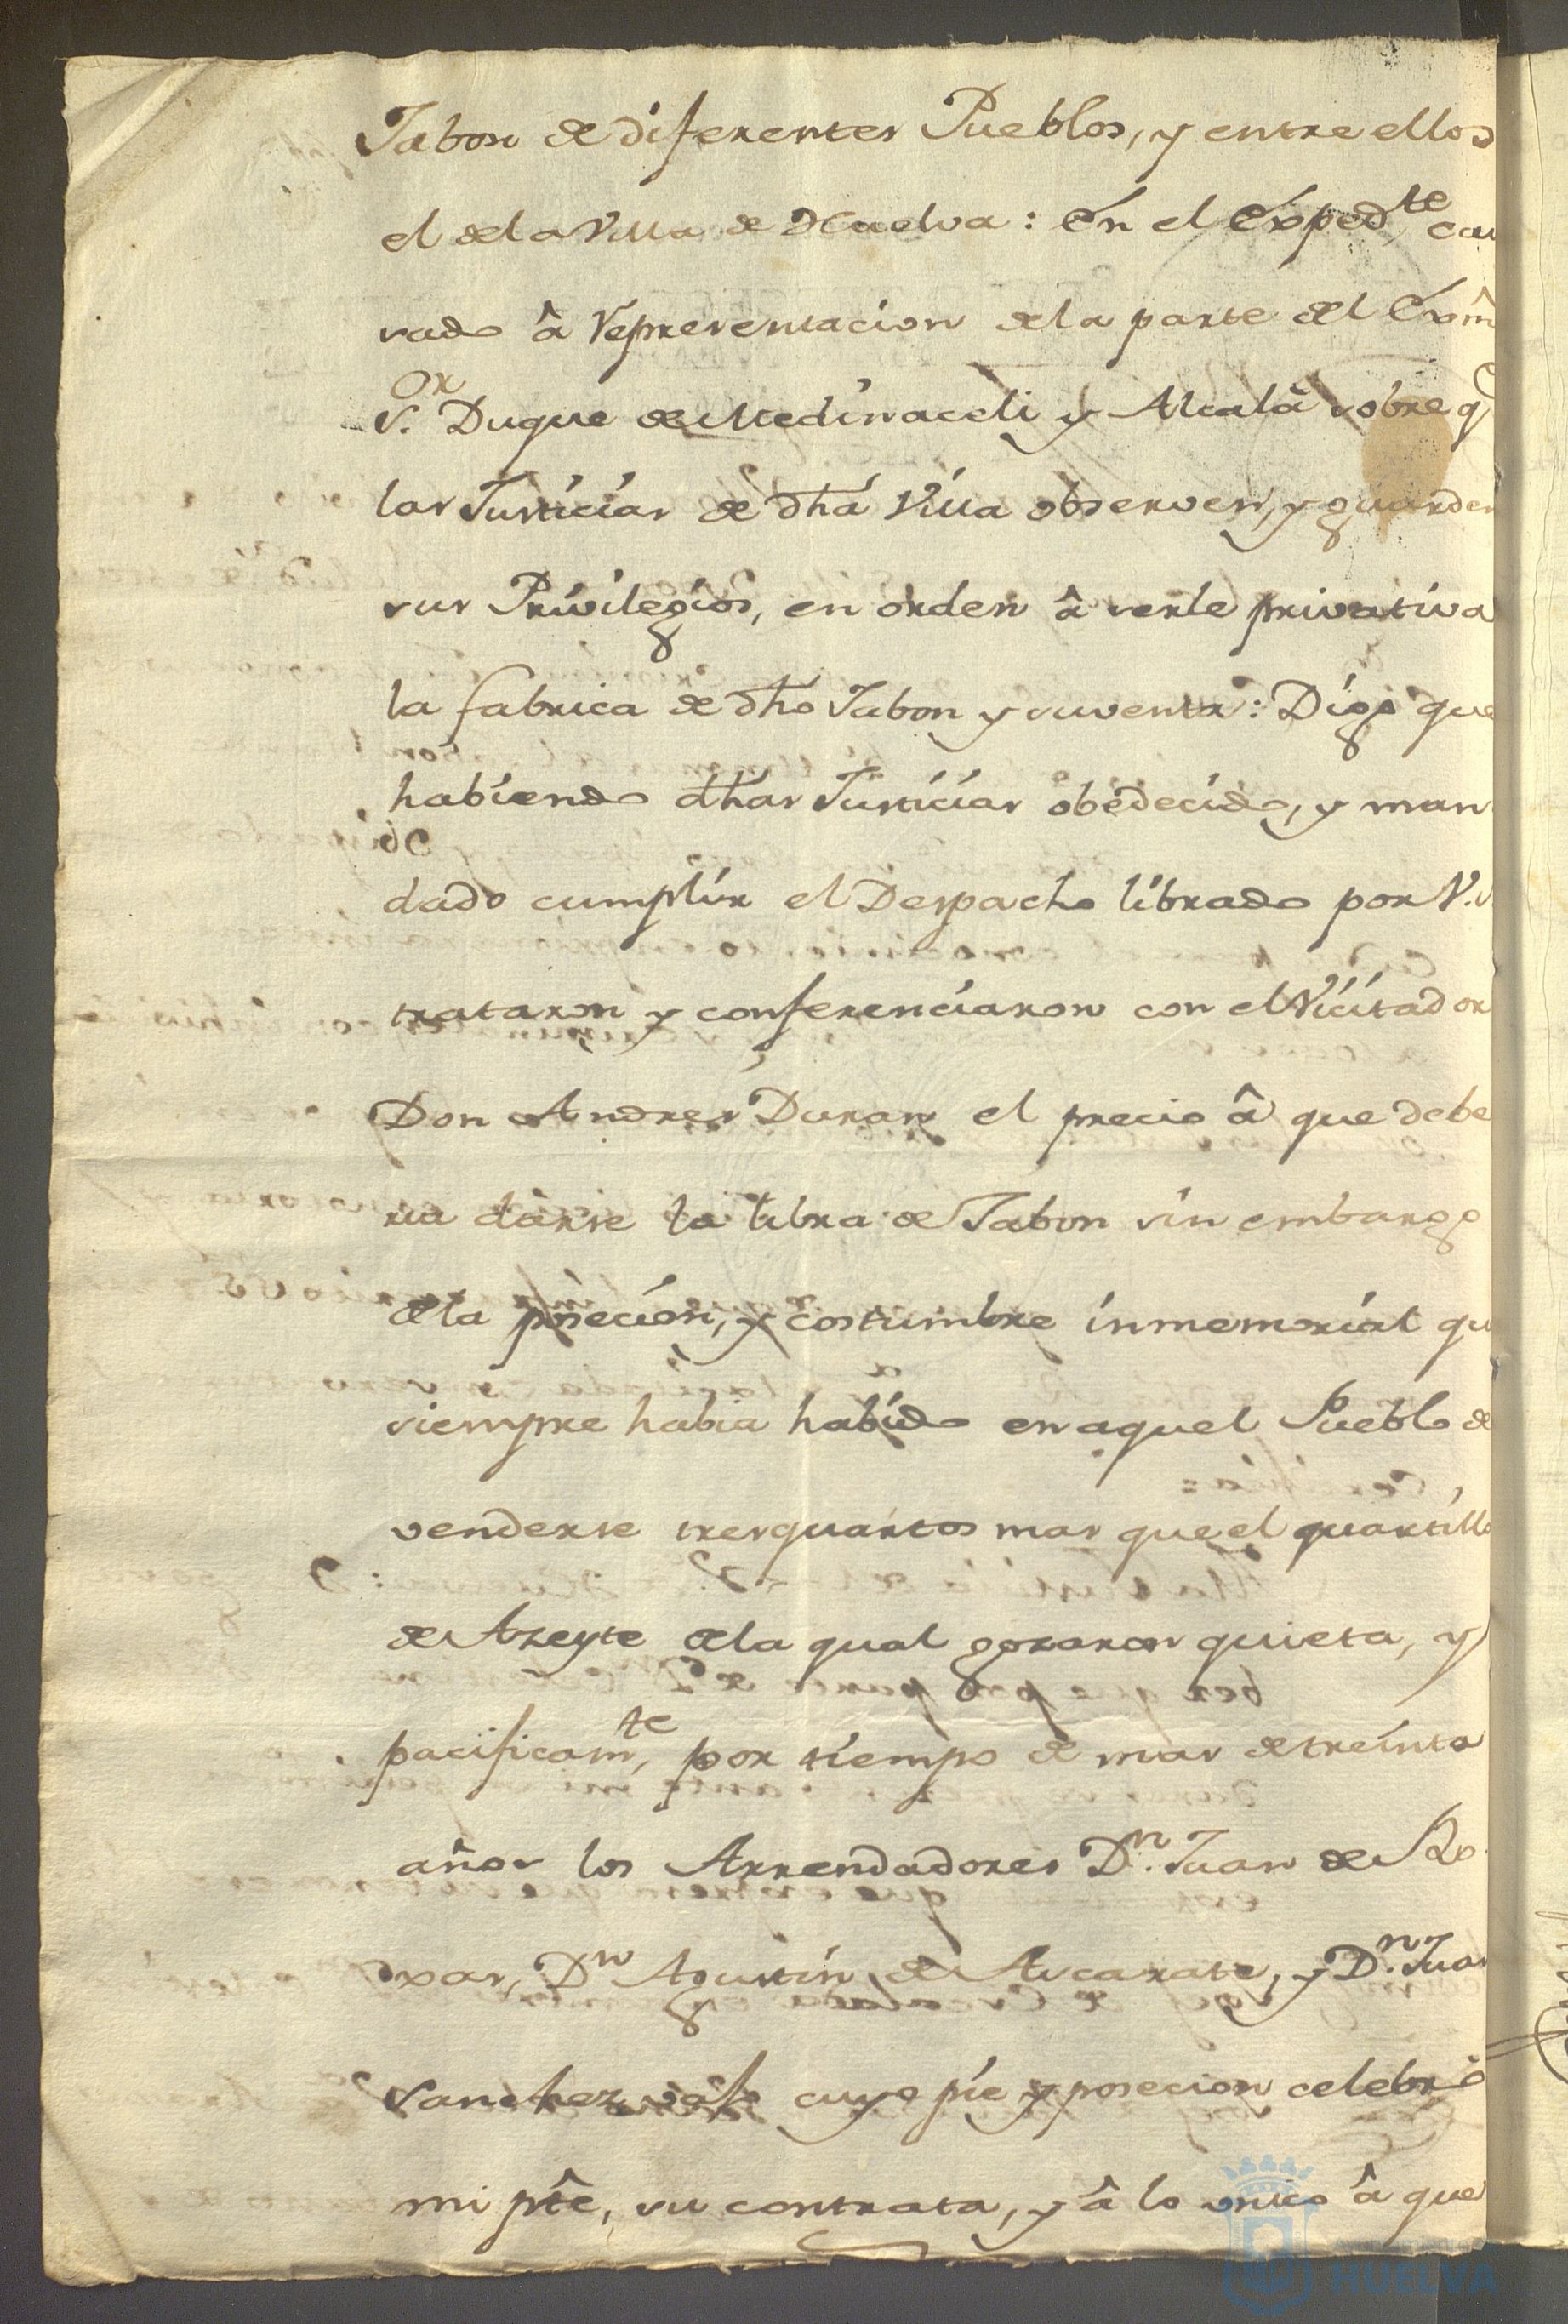 Jabon de diferentes Pueblos, y entre ellos
el de la Villa de Huelva: En el Exped.te cau
sado â representacion de la parte del Exm̂
S.or Duque de Medinaceli y Alcalâ sobre q
las Justicias de dha Villa observen, y guarden
sus Privilegios, en orden â serle privativa
la fabrica de dho Jabon y su venta: Digo que
habiendo dhas Justicias obedecido, y man
dado cumplir el Despacho librado por V.
trataron y conferenciaron con el Vicitador
Don Andres Duran el precio â que debe
ria darse la libra de Jabon sin embargo
de la posecion, y costumbre inmemorial qu
siempre habia habido en aquel Pueblo de
venderse tres quartos mas que el quartillo
de Azeyte de la qual gozaron quieta, y
pacificam.te, por tiempo de mas de treinta
años los Arrendadores D.n Juan de Ro
xas, D.n Agustin de Ascarate, y D.n Juan
Sanchez, cuyo pie y posecion celebró
mi pte, su contrata, y â lo unico â que
HUELVA